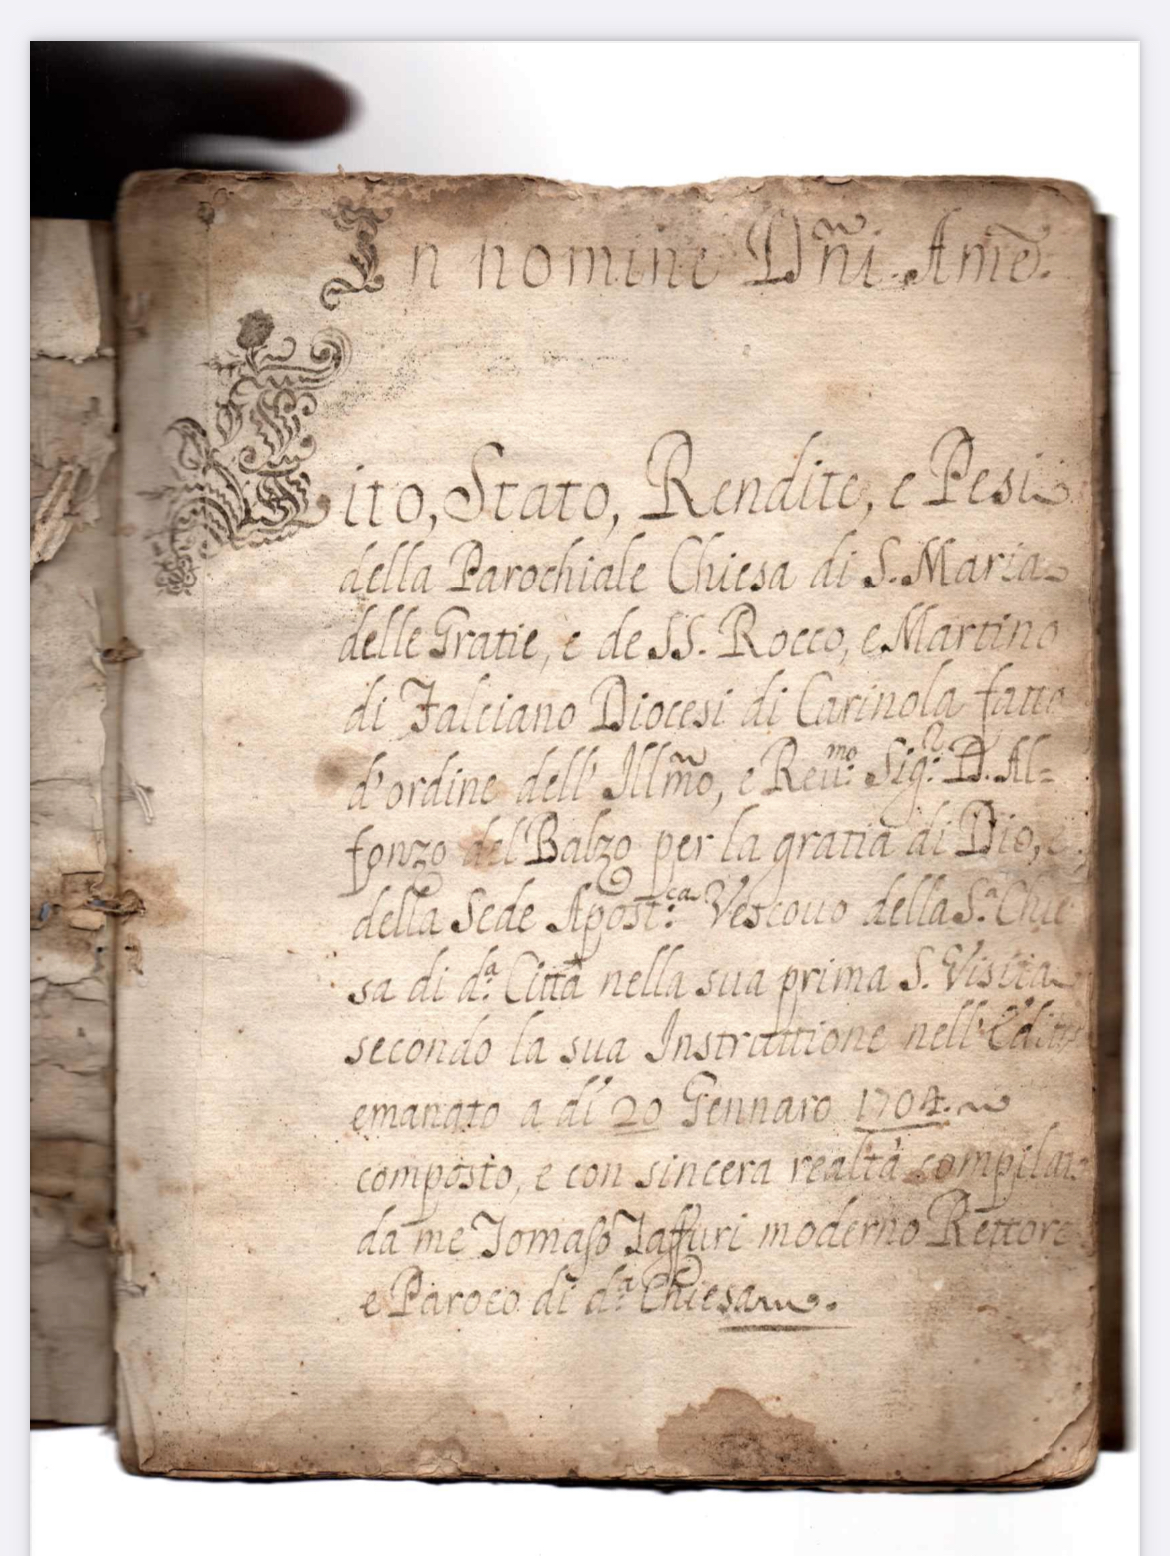 In nomine Dñi. Amẽ.
Sito, Stato, Rendite, e Pesi
della Parochiale Chiesa di S. Maria
delle Gratie, e de SS. Rocco, e Martino
di Falciano Diocesi di Carinola fatto
d'ordine dell' Illm̃o, e Reu:mo Sig:r D. Al=
fonzo del Balzo per la gratia di Dio, e
della Sede Apost:ca Vescouo della S.a Chie
sa di d:a Città nella sua prima S. Visita
secondo la sua Instruttione nell' Editto
emanato a di 20 Gennaro 1704.
composto, e con sincera realtà
da me Tomaso Taffuri moderno Rettore
e Paroco di d:a Chiesa.